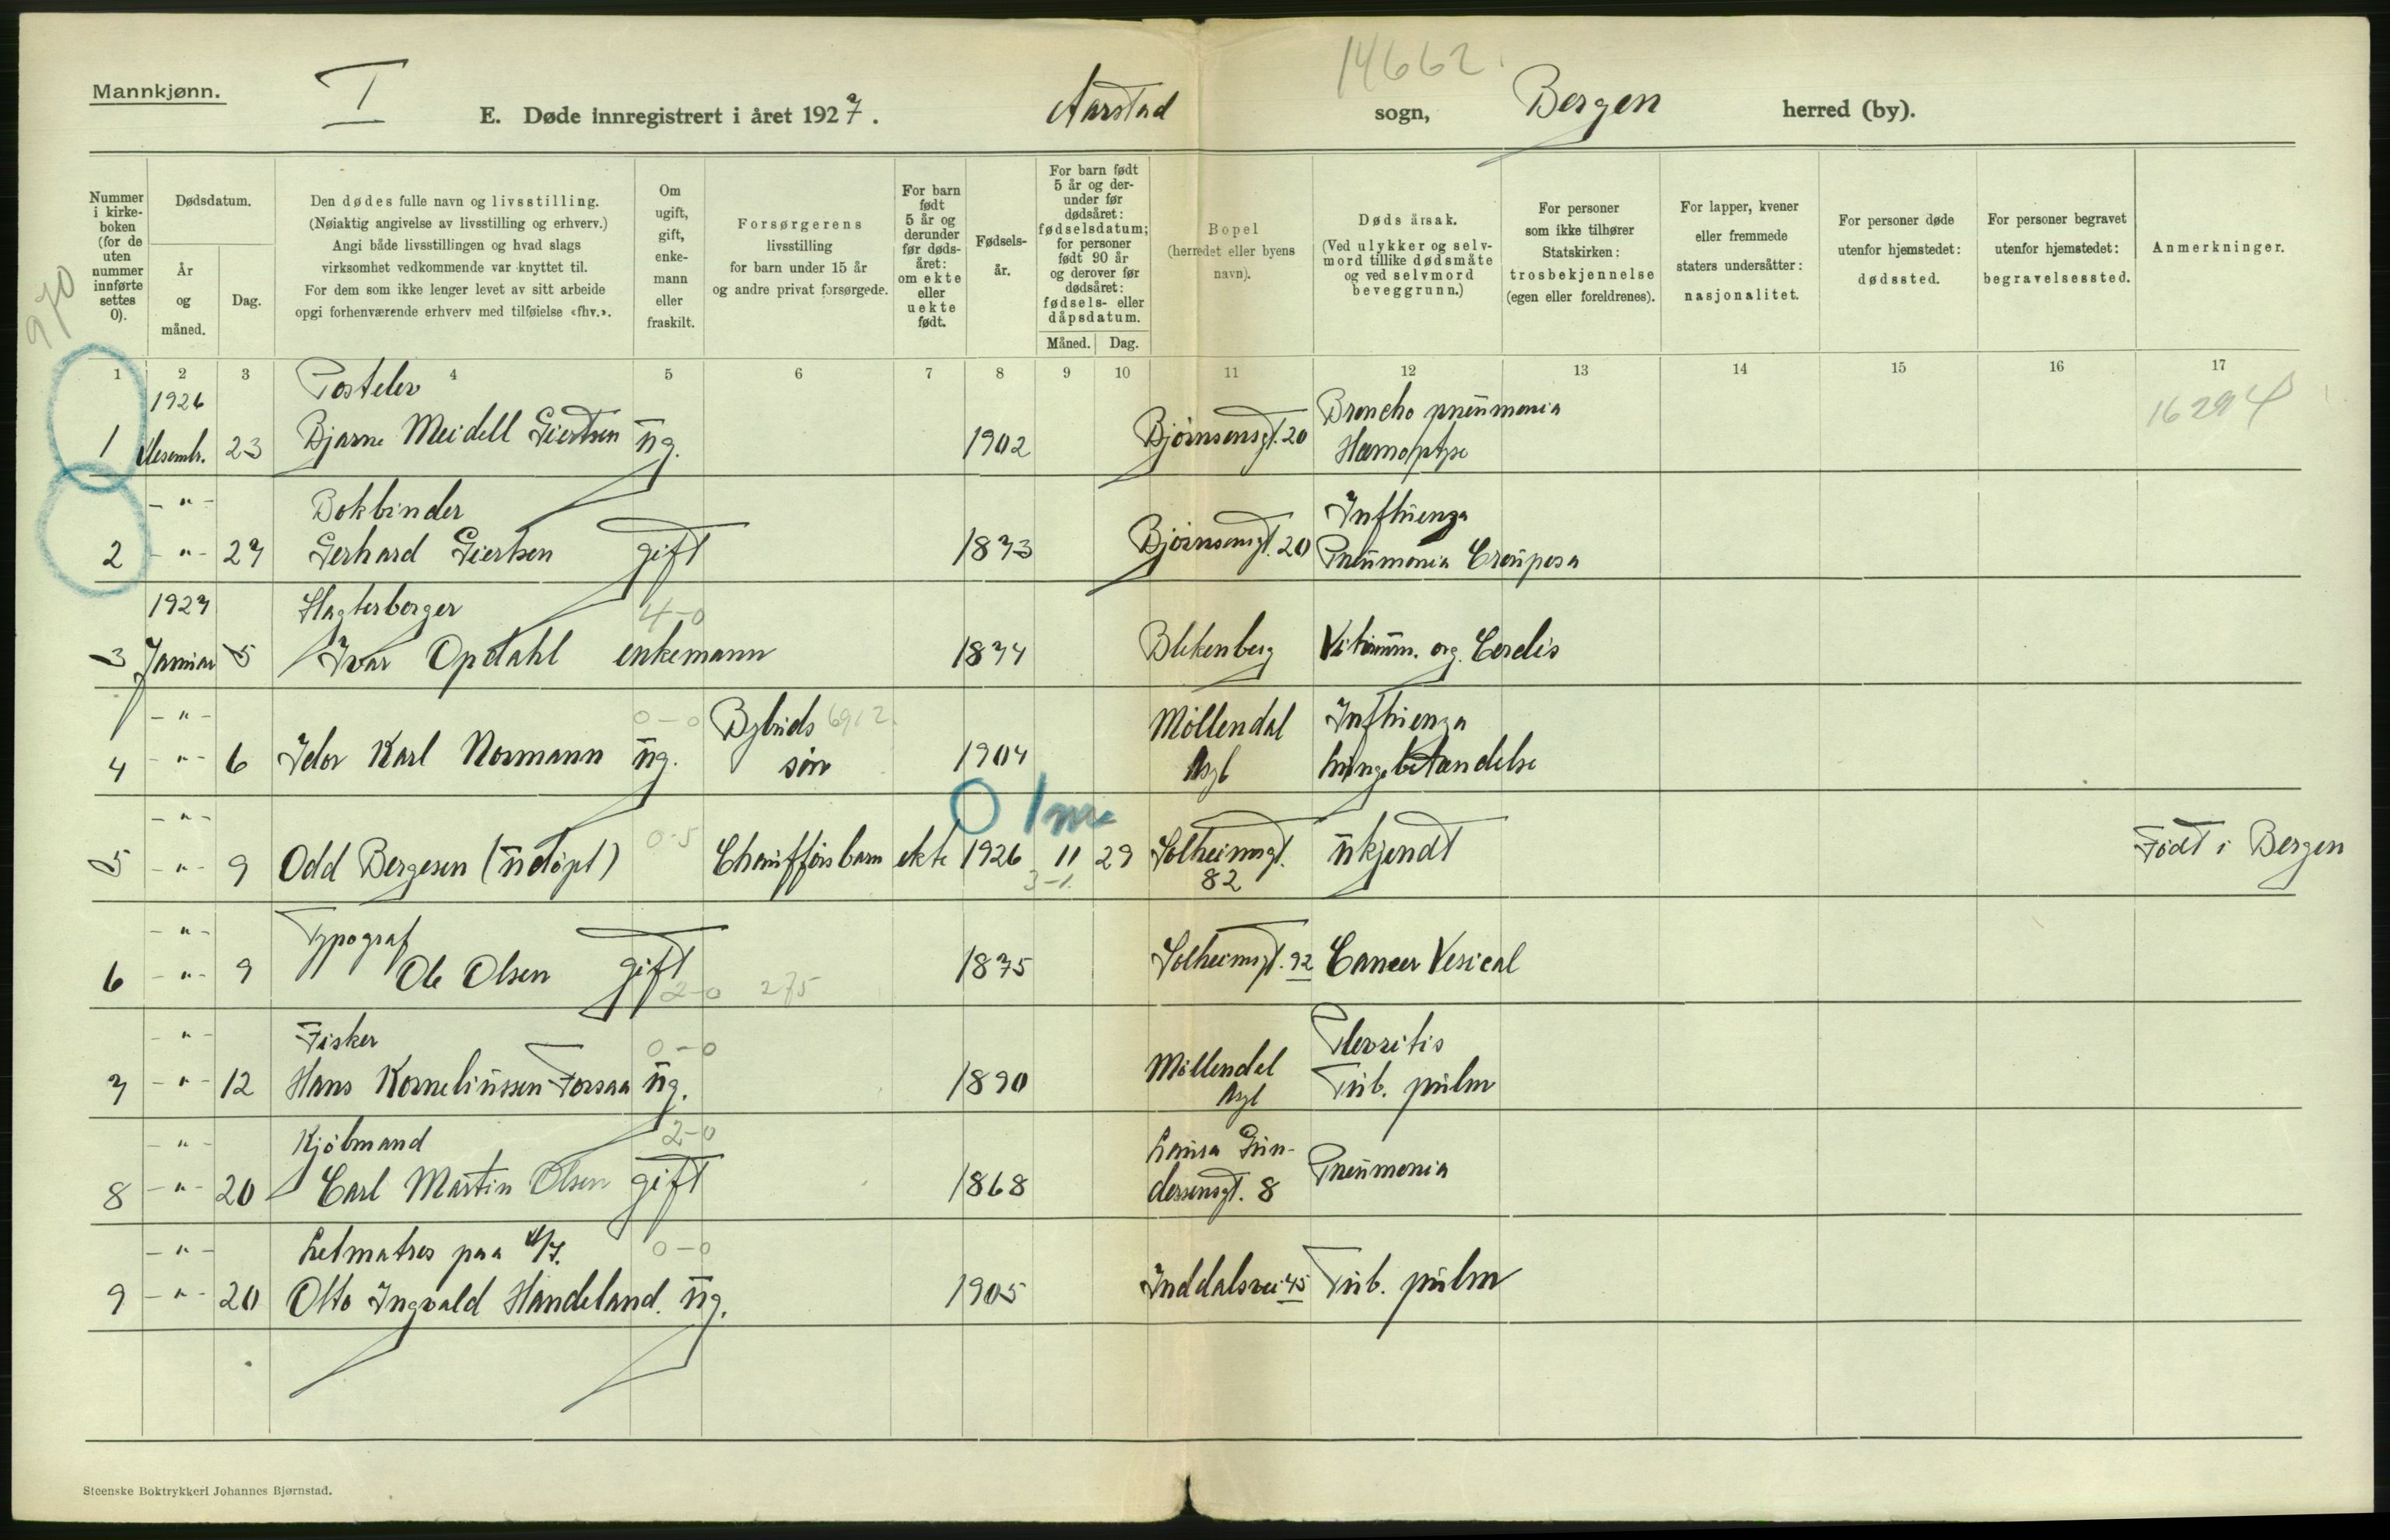 14662.
Mannkjønn.
I
E. Døde innregistrert i året 1927.
Aarstad
sogn,
Bergen
herred (by).
970
Nummer i kirkeboken (for de uten nummer innførte settes 0).
Dødsdatum.
År og måned.
Dag.
Den dødes fulle navn og livsstilling.
(Nøiaktig angivelse av livsstilling og erhverv.)
Angi både livsstillingen og hvad slags
virksomhet vedkommende var knyttet til.
For dem som ikke lenger levet av sitt arbeide
opgi forhenværende erhverv med tilføielse «fhv.».
Om ugift, gift, enkemann eller fraskilt.
Forsørgerens
livsstilling
for barn under 15 år
og andre privat forsørgede.
For barn født 5 år og derunder før dødsåret: om ekte eller uekte født.
Fødselsår.
For barn født 5 år og derunder før dødsåret: fødselsdatum; for personer født 90 år og derover før dødsåret: fødsels- eller dåpsdatum.
Måned.
Dag.
Bopel
(herredet eller byens navn).
Døds årsak.
(Ved ulykker og selvmord tillike dødsmåte og ved selvmord beveggrunn.)
For personer
som ikke tilhører
Statskirken:
trosbekjennelse
(egen eller foreldrenes).
For lapper, kvener
eller fremmede
staters undersåtter:
nasjonalitet.
For personer døde
utenfor hjemstedet:
dødssted.
For personer begravet
utenfor hjemstedet:
begravelsessted.
Anmerkninger.
1 2 3 4 5 6 7 8 9 10 11 12 13 14 15 16 17
1926 Postelev Broncho pneumonia 16294
1 Desembr. 23 Bjarne Meidell Giertsen ug. 1902 Bjørnsonsgt. 20 Hæmoptyse
— " — Bokbinder Influenza
2 — " — 27 Gerhard Giertsen gift 1873 Bjørnsonsgt. 20 Pneumonia Crouposa
1927 Slagterborger 4-0
3 Januar 5 Ivar Opdahl enkemann 1874 Blekenberg Vitium. org. Cordis
— " — 0-0 Bybuds 6912. Møllendal Influenza
4 — " — 6 Karl Normann ug. søn 1904 Asyl lungebetændelse
— " — 0 1 me
5 — " — 9 Odd Bergesen (udøpt) 0-5 Chaufførsbarn ekte 1926 11 29 Solheimsgt. ukjendt Født i Bergen
3-1. 82
— " — Typograf
6 — " — 9 Ole Olsen gift 1875 Solheimsgt. 92 Cancer Vesical
2-0 275
— " — Fisker 0-0 Plevritis
7 — " — 12 Hans Korneliussen Forsaa ug. 1890 Møllendal Asyl Tub. pulm
— " — Kjøbmand 2-0
8 — " — 20 Carl Martin Olsen gift 1868 dersensgt. 8 Pneumonia
— " — Letmatros paa 0-0
9 — " — 20 Otto Ingvald Handeland. ug. 1905 Inddalsvei 45 Tub. pulm
Steenske Boktrykkeri Johannes Bjørnstad.